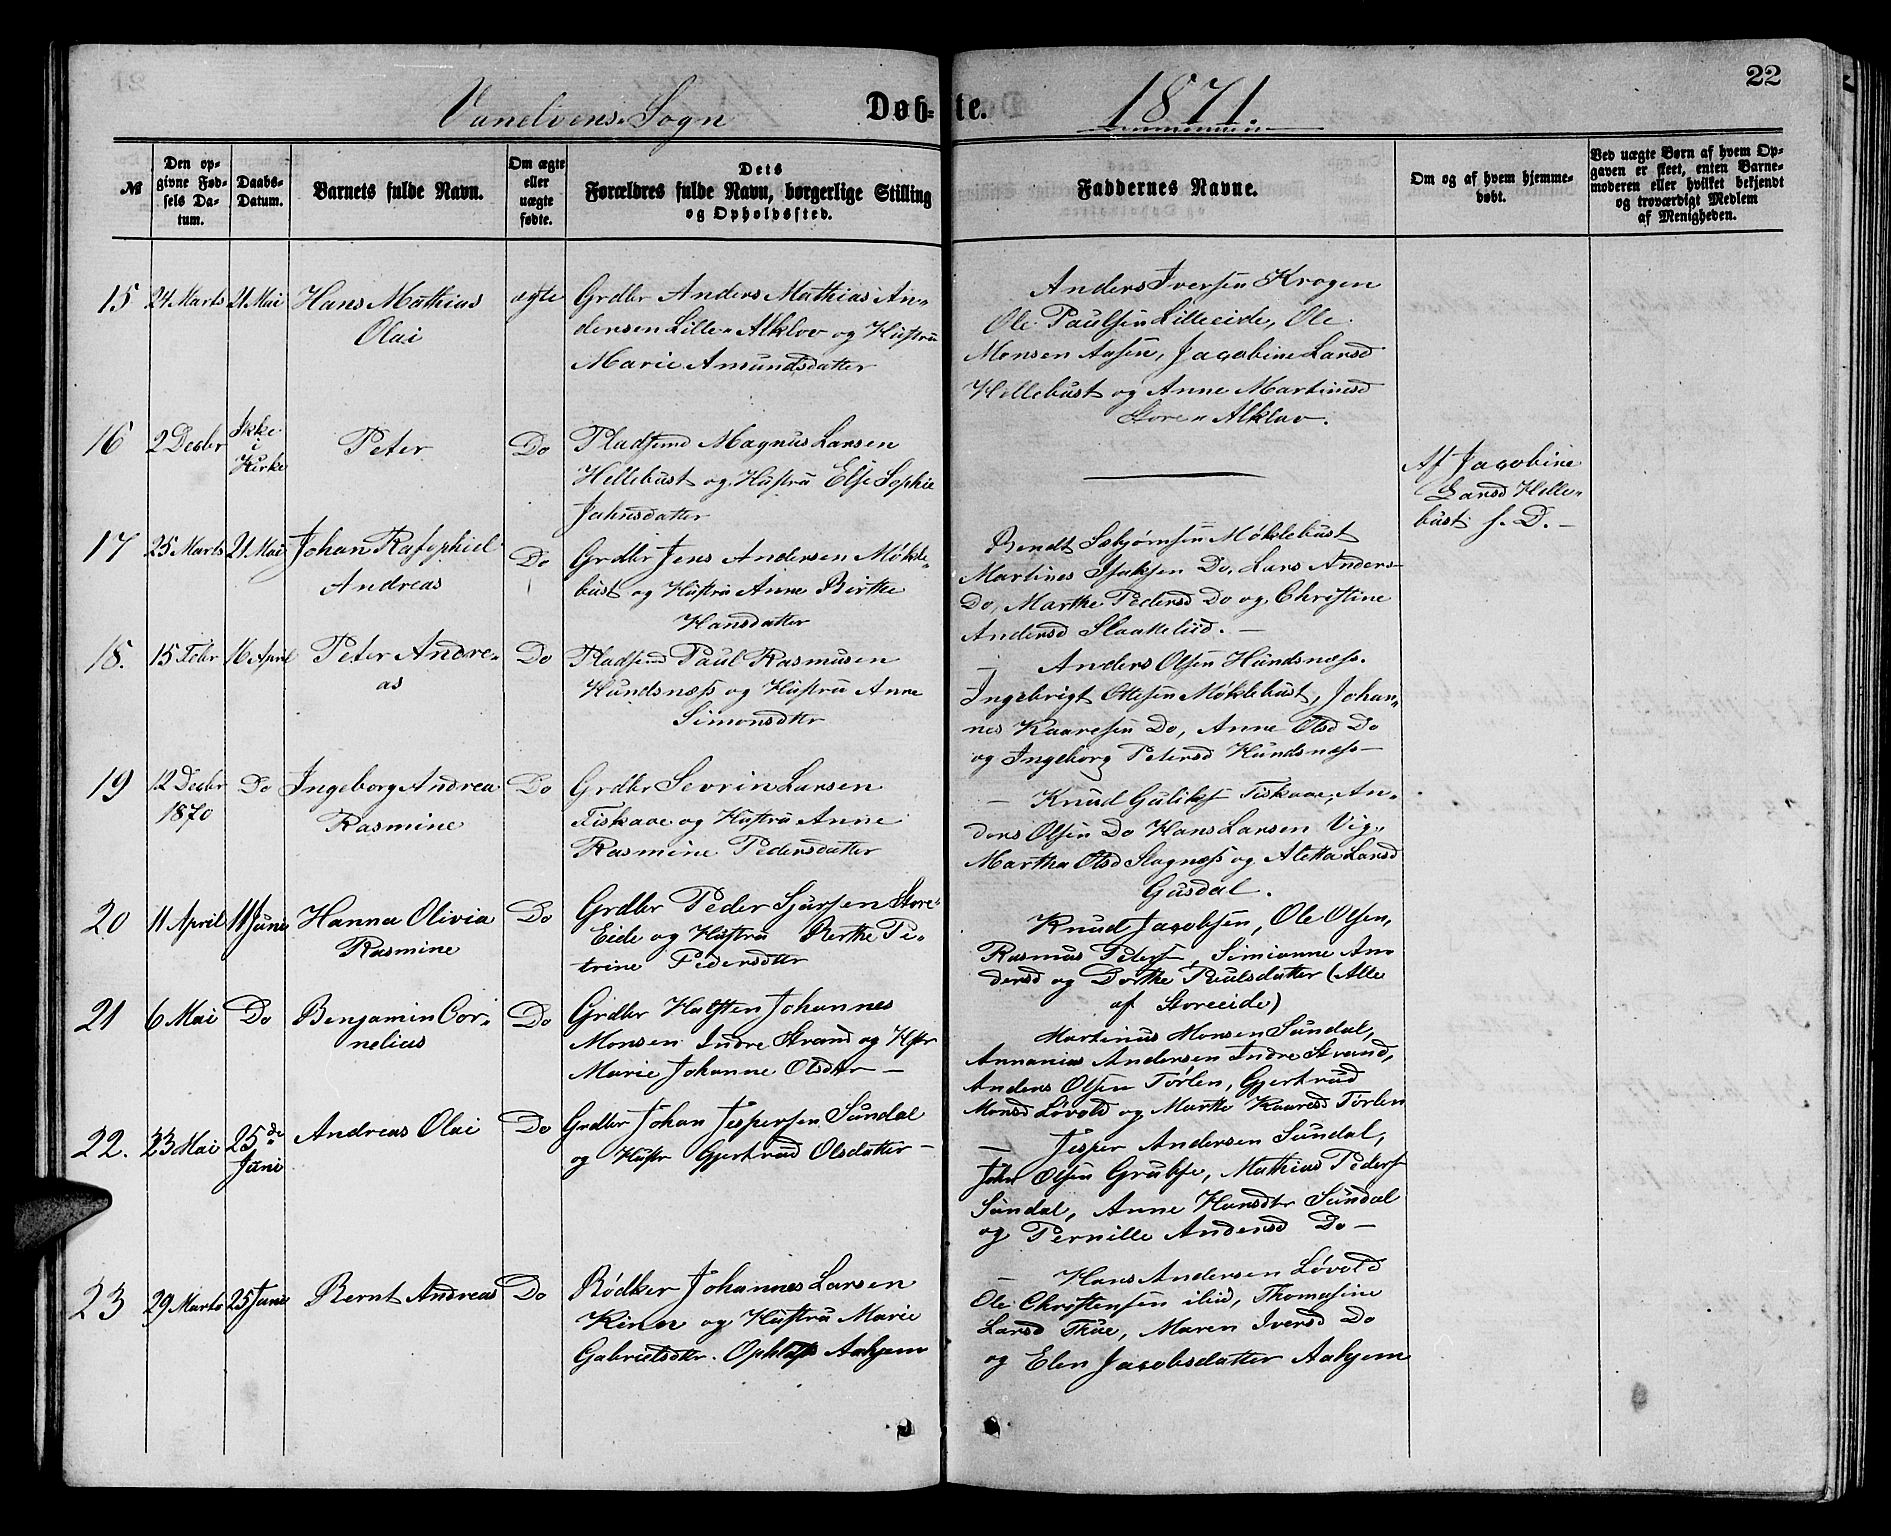 22
Vanelvens Sogn Døb=te. 1871.
№ Den opgivne Fødsels Datum. Daabs-Datum. Barnets fulde Navn. Om ægte eller uægte fødte. Dets Forældres fulde Navn, borgerlige Stilling og Opholdssted. Faddernes Navne. Om og af hvem hjemmedøbt. Ved uægte Børn af hvem Opgaven er skeet, enten Barnemoderen eller hvilket bekjendt og troværdigt Medlem af Menigheden.
15 24 Marts 21 Mai Hans Mathias
Olai
ægte
Grdbr Anders Mathias An-
dersen Lille-Alklov og Hustru
Marie Amundsdatter
Anders Iversen Krogen
Ole Paulsen Lilleeide, Ole
Monsen Aasen, Jacobine Larsd
Hellebust og Anne Martinesd
Store-Alklov.
16 2 Decbr Ikke
i
Kirke
Peter
Do
Pladsmd Magnus Larsen
Hellebust og Hustru Else Sophie
Jahnsdatter
Af Jacobine
Larsd Helle-
bust f. D. -
17 25 Marts 21 Mai Johan Rasephiel
Andreas
Do
Grdbr Jens Andersen Møkle-
bust og Hustru Anne Birthe
Hansdatter
Bendt Asbjørnsen Møklebust
Martines Isaksen Do, Lars Anders-
Do, Marthe Pedersd Do og Christine
Andersd Slaattelid. -
18. 15 Febr 16 April Peter Andre-
as
Do
Pladsmd Paul Rasmusen
Hundsnæss og Hustru Anne
Simonsdtter
Anders Olsen Hundsnæss.
Ingebrigt Ottesen Møklebust, Johan-
nes Kaaresen Do, Anne Olsd Do
og Ingeborg Petersd Hundsnæss -
19 12 Decbr
1870
Do Ingeborg Andrea
Rasmine
Do
Grdbr Sevrin Larsen
Fiskaae og Hustru Anne
Rasmine Pedersdatter
- Knud Guliks Fiskaae, An-
ders Olsen Do Hans Larsen Vig,
Martha Olsd Slagnæss og Aletta Larsd
Gusdal.
20 11 April 11 Juni Hanna Olivia
Rasmine
Do
Grdbr Peder Sjursen Store-
Eide og Hustru Berthe Pe-
trine Pedersdtr
Knud Jacobsen, Ole Olsen,
Rasmus Peders, Simianne An-
dersd og Dorthe Paulsdatter (Alle
af Storeeide)
21 6 Mai Do Benjamin Cor-
nelius
Do
Grdbr Halsten Johannes
Monsen Indre Strand og Hstr
Marie Johanne Olsdtr -
Martinus Monsen Sundal,
Annanias Andersen Indre Strand,
Anders Olsen Tørlen, Gjertrud
Monsd Løvold og Marthe Kaaresd Tørlen
22. 23 Mai 25de
Juni
Andreas Olai
Do
Grdbr Johan Jespersen Sundal
og Hustr Gjertrud Olsdatter -
- Jesper Andersen Sundal,
John Olsen Grubse, Mathias Peders
Sundal, Anne Hansdtr Sundal
og Pernille Andersd Do -
23 29 Marts 25 Juni Bernt Andreas Do
Bødker Johannes Larsen
Kinn og Hustru Marie
Gabrielsdtr. Ophlds Aahjem
- Hans Andersen Løvold
Ole Christensen ibid, Thomasine
Larsd Thue, Maren Iversd Do
og Elen Jacobsdatter Aahjem